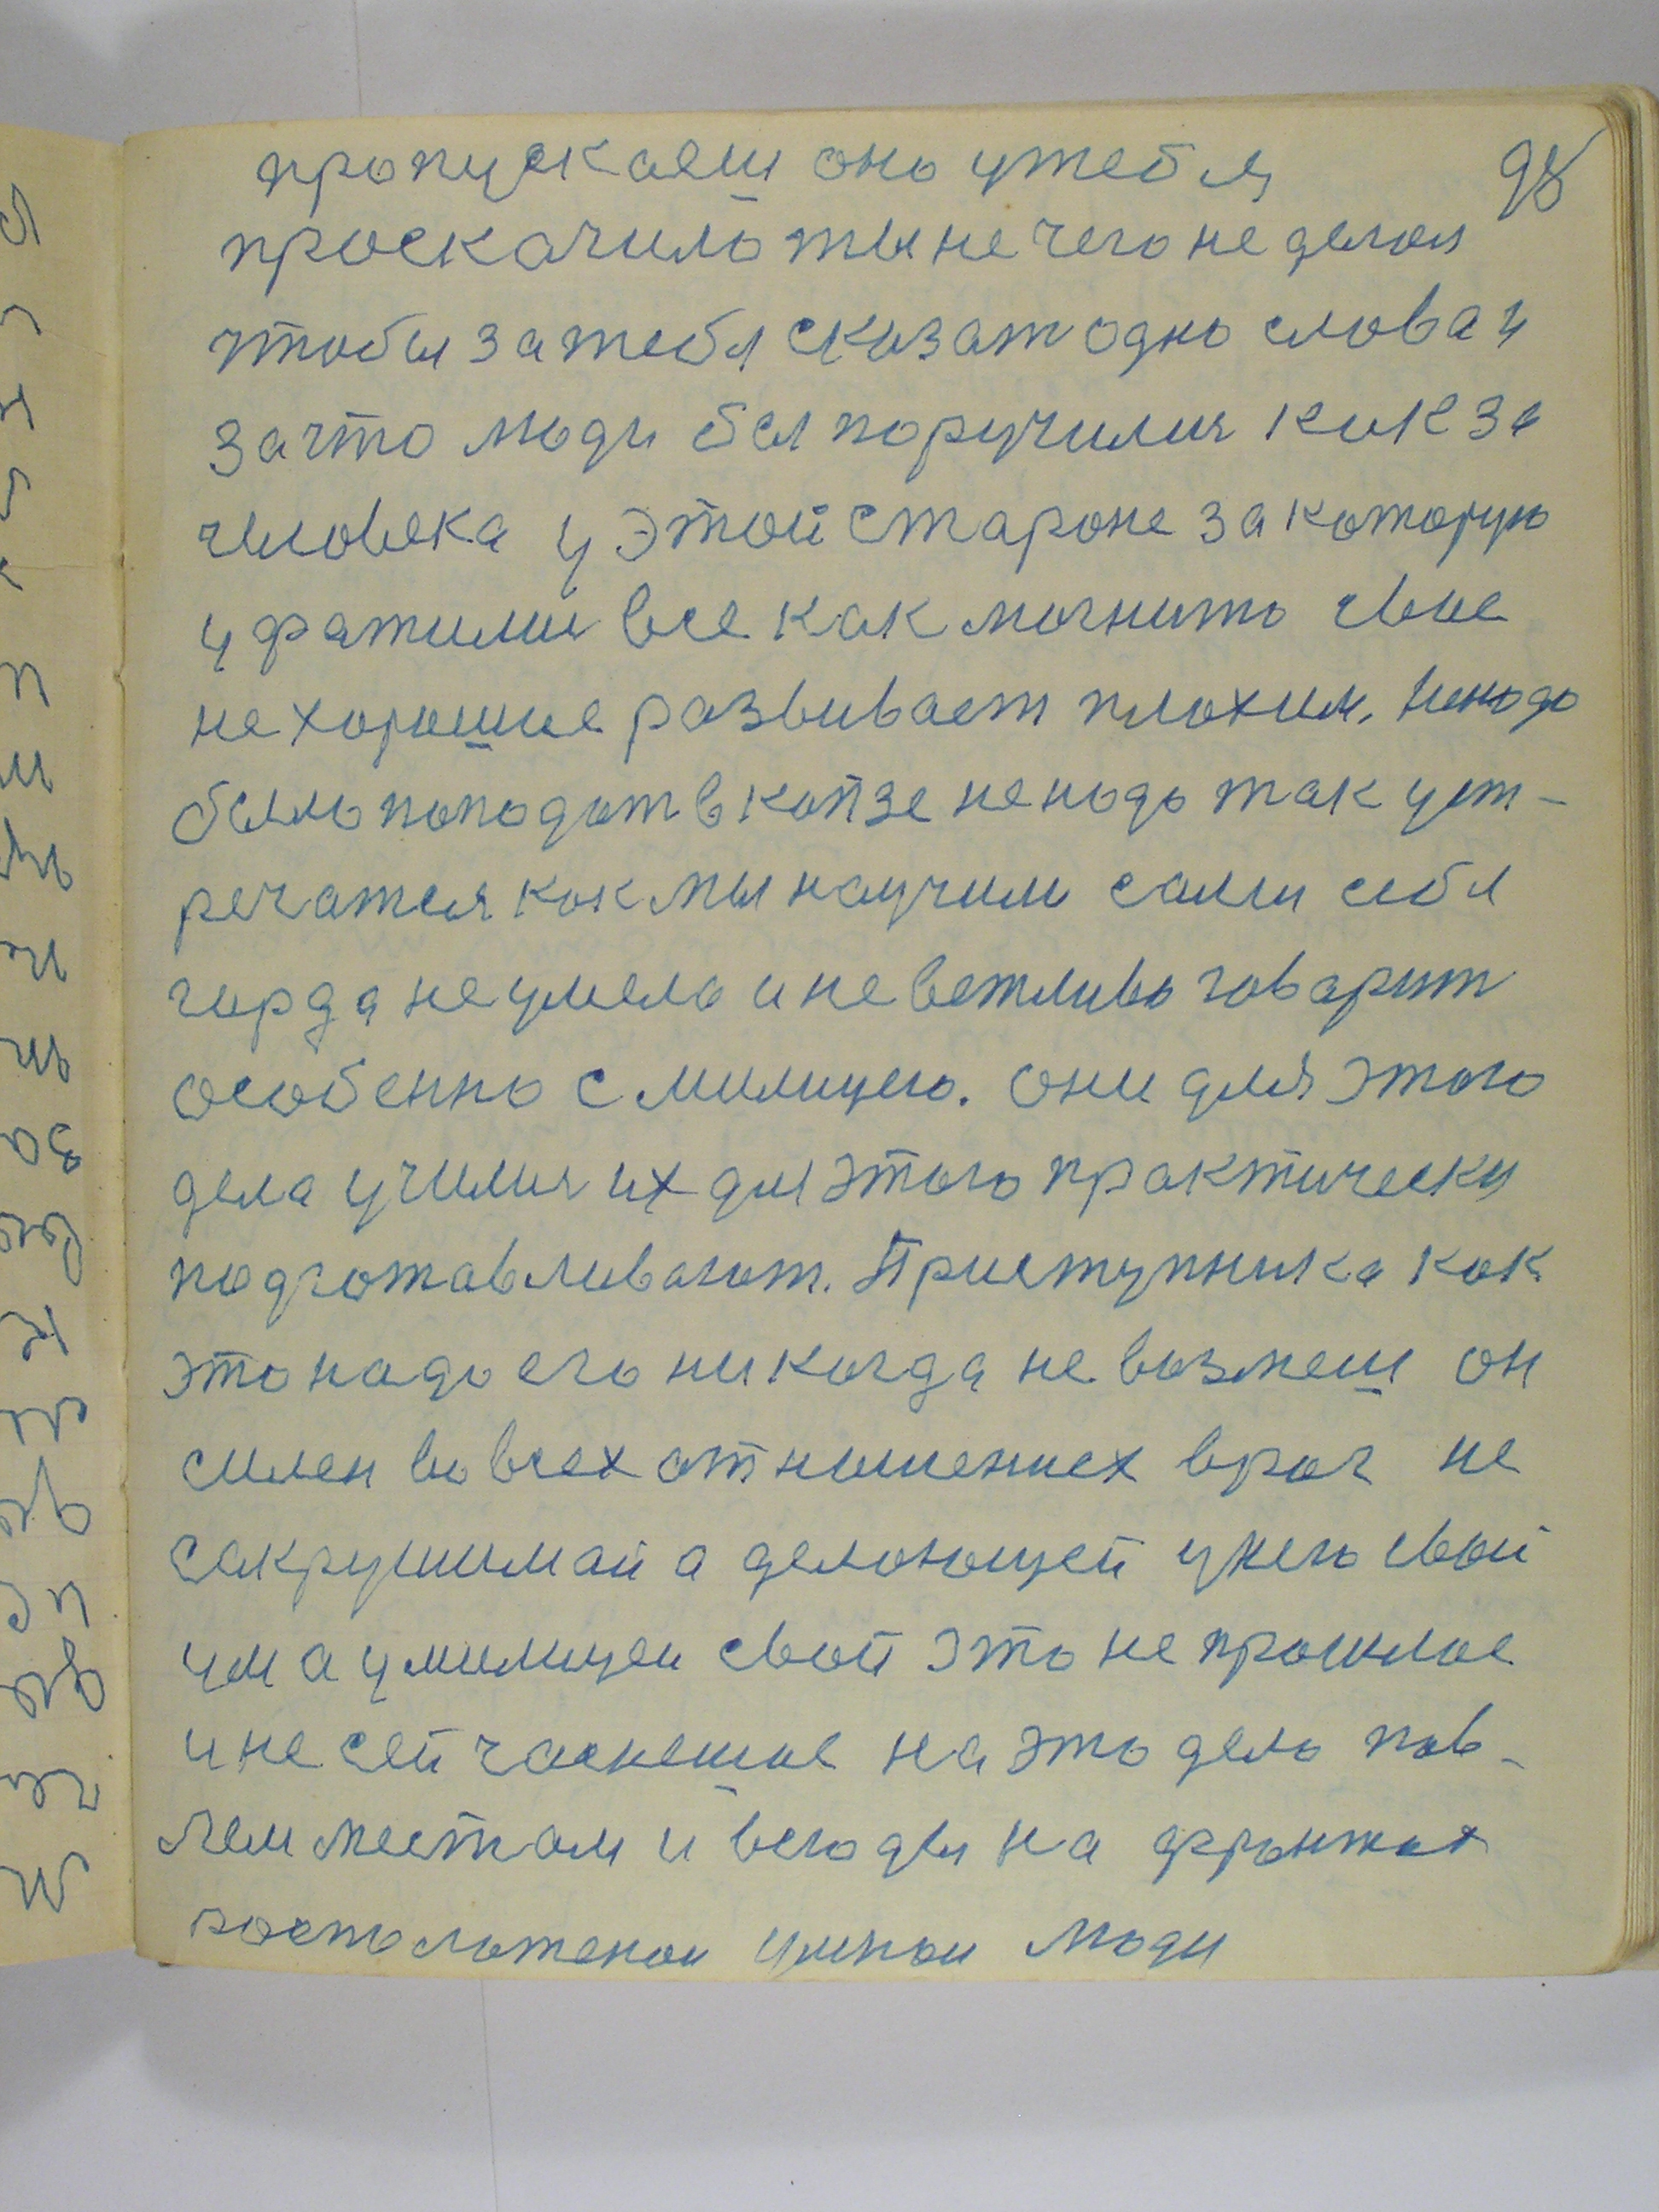 98
пропускаеш оно утебя
проскачило ты не чего не делал
чтобы за тебя сказат одно слова и
за что люди бы поручился как за
человека у этой староне за которую
уфатили все как магнито свие
не хорошие развивает плохим. Ненадо
было пападат в кпзе не надо так уст-
речатся как мы научили сами себя
горда не умело и не вежливо говарит
особенно с милицею. Они для этого
дела учился их для этого практически
подготавливают. Приступника как
это надо его никогда не возмеш он
силен во всех отношениех враг не
сакрушимай а делающей унего свой
ум а у милицеи свой это не прошлое
и не сейчаснешие на это дело пов-
сем местам и всюды на фрынжах
росположенаи умнаи люди